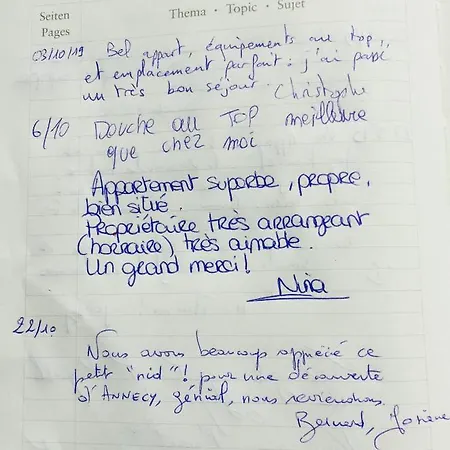 Seiten
Pages
Thema · Topic · Sujet
03/10/19 Bel appart, équipements au top,
et emplacement parfait : j'ai passé
un très bon séjour. Christophe
6/10 Douche au TOP meilleure
que chez moi
Appartement superbe, propre,
bien situé.
Propriétaire très arrangeant
(horraire) très aimable.
Un grand merci !
Nina
22/10
Nous avons beaucoup apprécié ce
petit "nid" ! pour une découverte
d'ANNECY, génial, nous reviendrons.
Bernard,